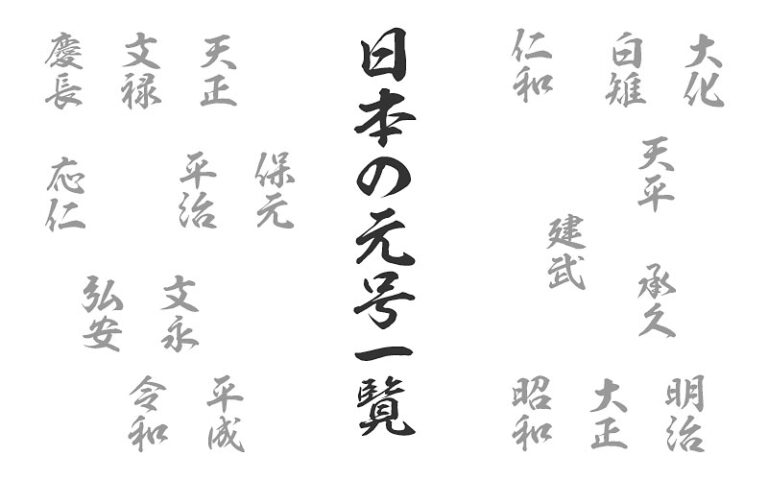 大化
白雉
仁和
天平
建武
承久
明治
大正
昭和
日本の元号一覧
天正
文禄
慶長
保元
平治
応仁
文永
弘安
平成
令和